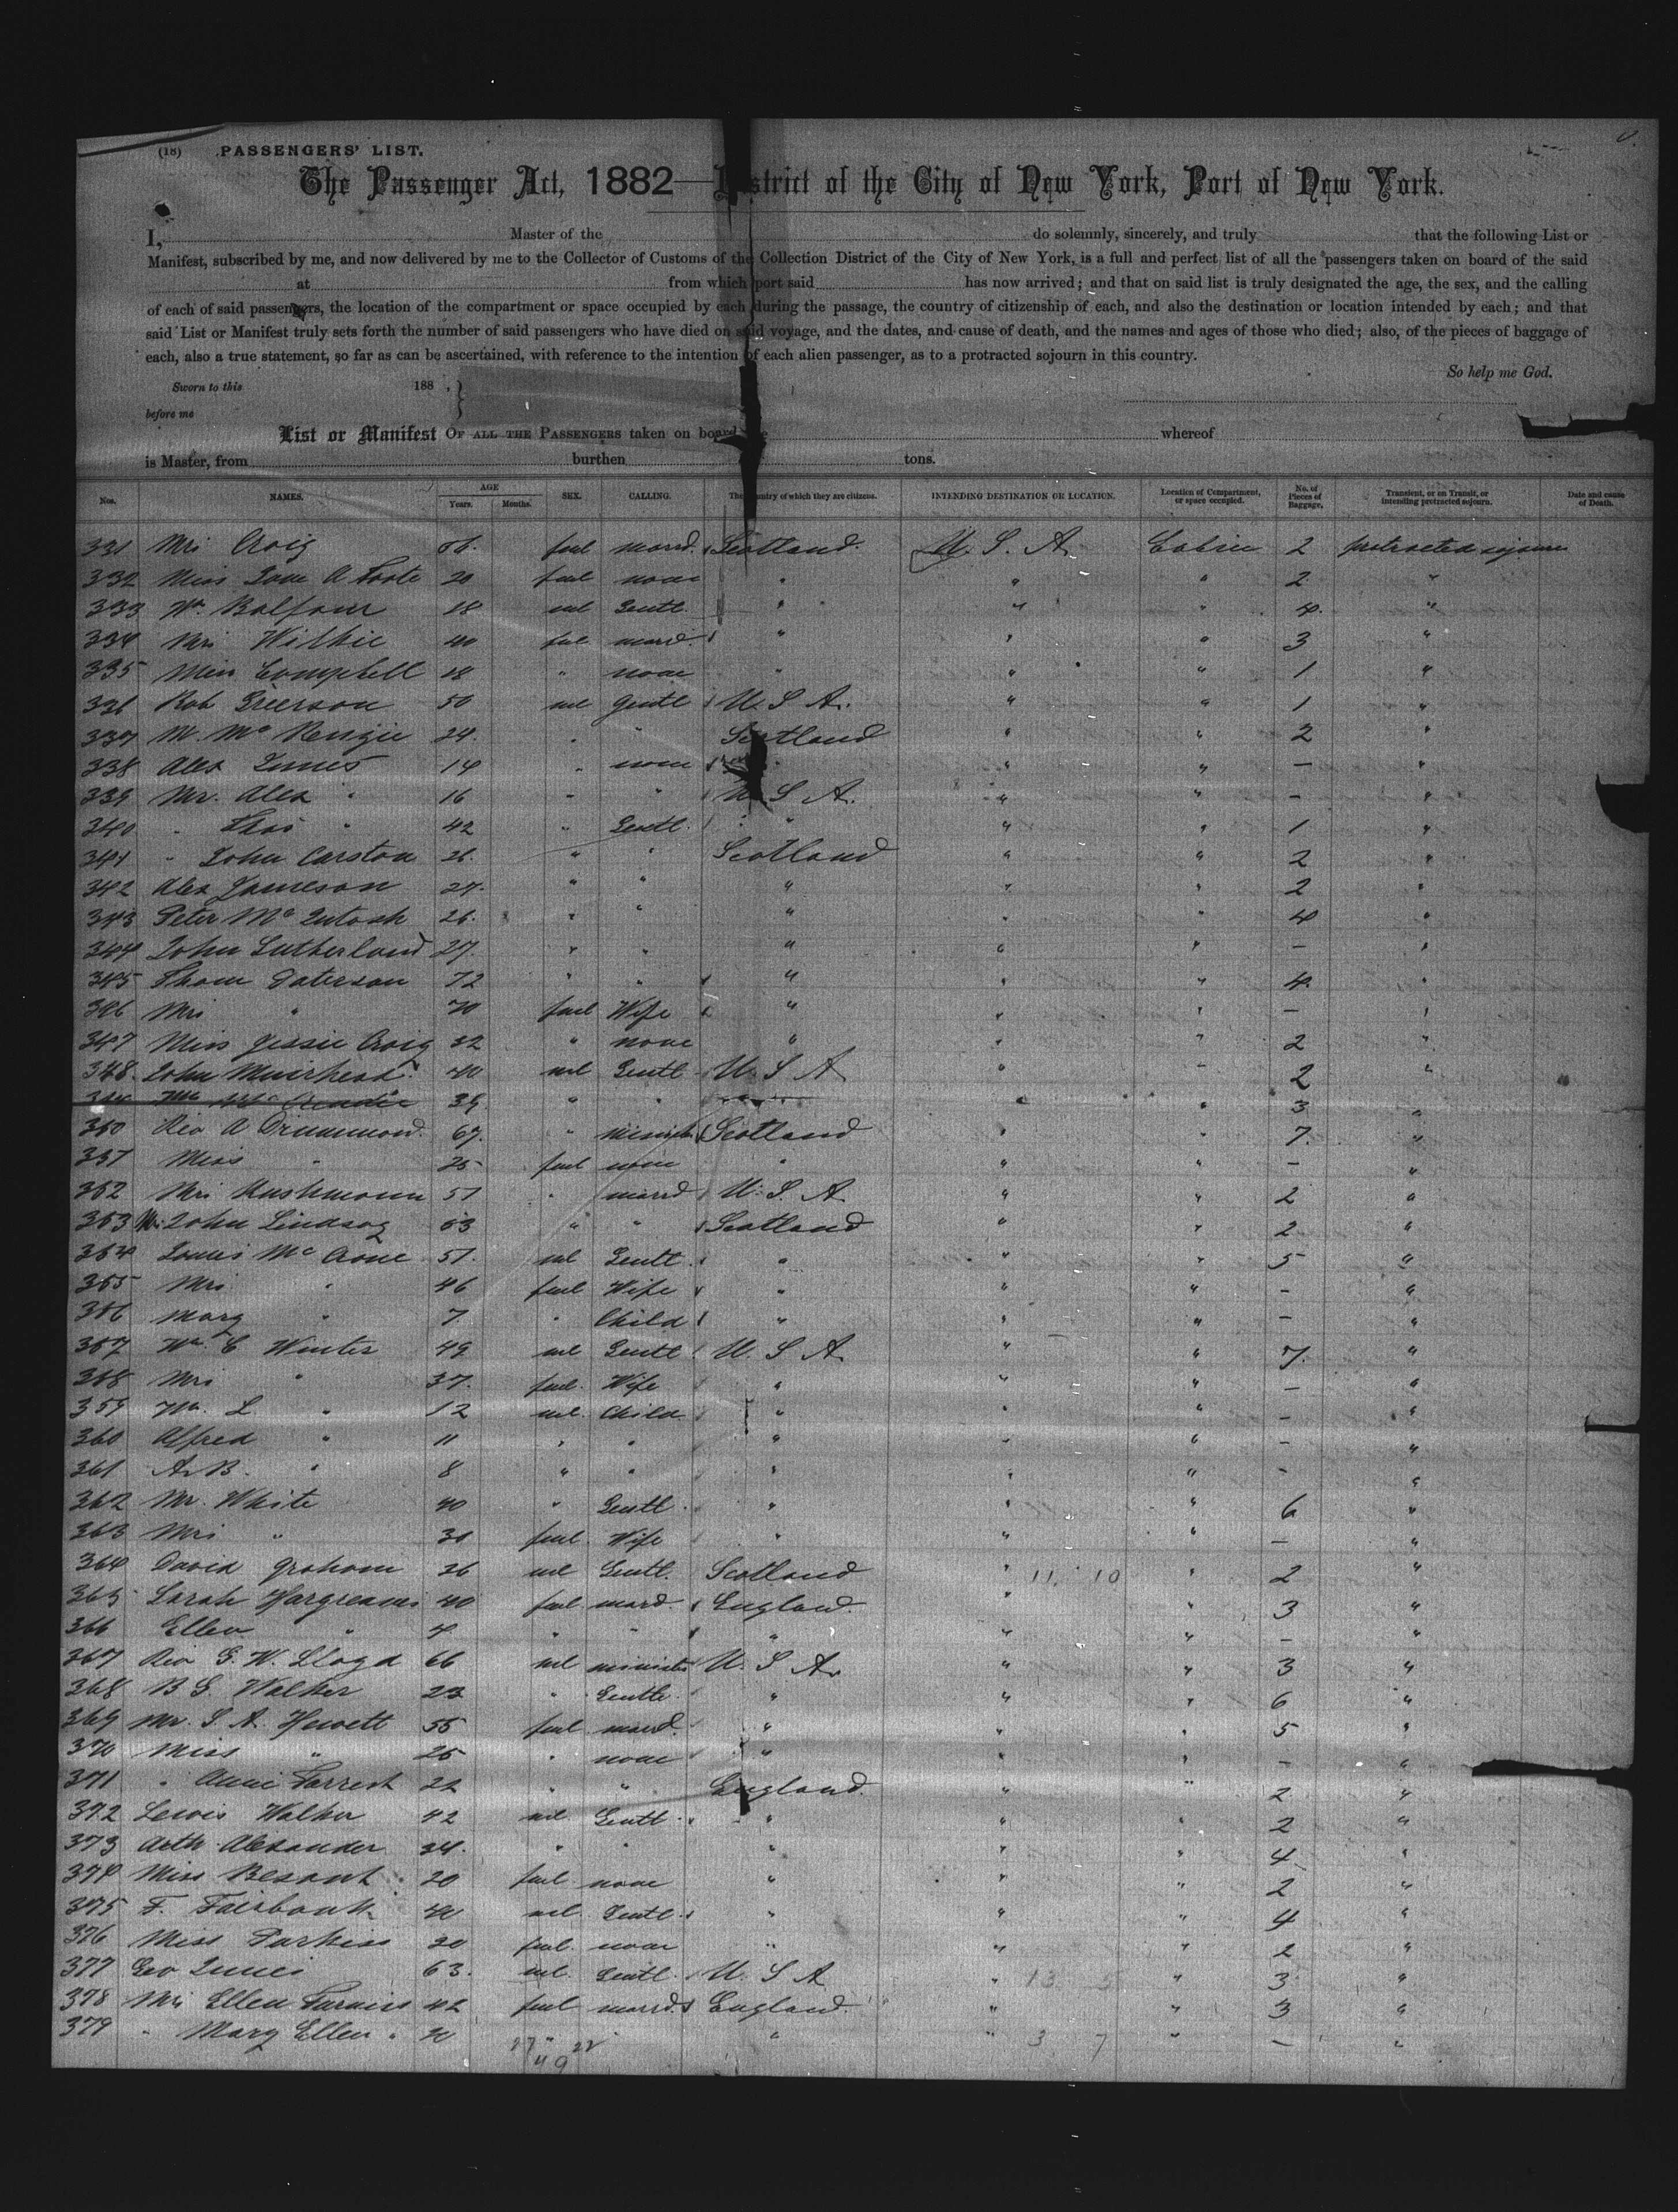 (18) PASSENGERS' LIST.
The Passenger Act, 1882—District of the City of New York, Port of New York.
I, Master of the do solemnly, sincerely, and truly that the following List or
Manifest, subscribed by me, and now delivered by me to the Collector of Customs of the Collection District of the City of New York, is a full and perfect list of all the passengers taken on board of the said
at from which port said has now arrived; and that on said list is truly designated the age, the sex, and the calling
of each of said passengers, the location of the compartment or space occupied by each during the passage, the country of citizenship of each, and also the destination or location intended by each; and that
said List or Manifest truly sets forth the number of said passengers who have died on said voyage, and the dates, and cause of death, and the names and ages of those who died; also, of the pieces of baggage of
each, also a true statement, so far as can be ascertained, with reference to the intention of each alien passenger, as to a protracted sojourn in this country.
So help me God.
Sworn to this 188 ,
before me
List or Manifest OF ALL THE PASSENGERS taken on board the whereof
is Master, from burthen tons.
Nos. NAMES. AGE Years. Months. SEX. CALLING. The country of which they are citizens. INTENDING DESTINATION OR LOCATION. Location of Compartment, or space occupied. No. of Pieces of Baggage. Transient, or on Transit, or intending protracted sojourn. Date and cause of Death.
331 Mrs Craig feml marrd. Scotland. U. S. A. Cabin 2 protracted sojourn
332 Miss Jane A Foote 20 feml none " " " 2 "
333 Wm. Balfour 18 ml Gentl. " " " 4. "
334 Mrs Wilkie 40 feml marrd. " " " 3 "
335 Miss Campbell 18 " none " " " 1 "
336 Rob Grierson 50 ml Gentl U. S A. " " 1 "
337 M. Mc Kenzie 24. " " Scotland " " 2 "
338 Alex Innes 14 " none " " — "
339 Mr. Alex " 16 " " U. S A. " " — "
340 " Thos " 42 " Gentl. " " " 1 "
341 " John Carston 26. " " Scotland " " 2 "
342 Alex Jameson 27. " " " " " 2 "
343 Peter Mc Intosh 26. " " " " " 4 "
344 John Sutherland 27. " " " " " — "
345 Thom Paterson 72 " " " " " 4. "
346 Mrs " 70 feml Wife " " " — "
347 Miss Jessie Craig 32 " none " " " 2 "
348. John Muirhead. 40 ml Gentl U. S A " " 2 "
39 " " " " 3 "
350 Rev A Drummond. 67. " minist. Scotland " " 7. "
351 Miss " 25 feml none " " " — "
352 Mrs Rushmoun 51 " marrd U. S. A " " 2 "
353 Mrs John Lindsay 63 " " Scotland " " 2 "
354 James Mc Crone 51. ml Gentl. " " " 5 "
355 Mrs " 46 feml Wife " " " — "
356 Mary " 7 " Child " " " — "
357 Wm. C Winter 49 ml Gentl. U. S A " " 7. "
358 Mrs " 37. feml. Wife " " " — "
359 Wm. L " 12 ml. Child " " " — "
360 Alfred " 11 " " " " " — "
361 A. B. " 8 " " " " " — "
362 Mr. White 40 " Gentl. " " " 6 "
363 Mrs " 30 feml. Wife " " " — "
364 David Graham 26 ml Gentl. Scotland " 11. 10 " 2 "
365 Sarah Hargreaves 40 feml mard. England. " " 3 "
366 Ellen " 4 " " " " " — "
367 Rev G. W. Lloyd 66 ml minister U. S A. " " 3 "
368 B G. Walker 23 " Gentle. " " " 6 "
369 Mr. S. A. Hewett 55 feml mard. " " " 5 "
370 Miss " 25 " none " " " — "
371 " Annie Forrest 22 " " England. " " 2 "
372 Lewis Walker 42 ml Gentl. " " " 2 "
373 Arth. Alexander 34. " " " " " 4 "
374 Miss Besant 20 feml none " " " 2 "
375 F. Fairbank 40 ml Gentl. " " " 4 "
376 Miss Parkiss 20 feml. none " " " 2 "
377 Geo Innes 63. ml. Gentl. U. S A " 13 " 3 "
378 Mrs Ellen Furniss 42 feml marrd. England. " " 3 "
379 " Mary Ellen " 20 " " " " 3 7 " — "
27 22
49